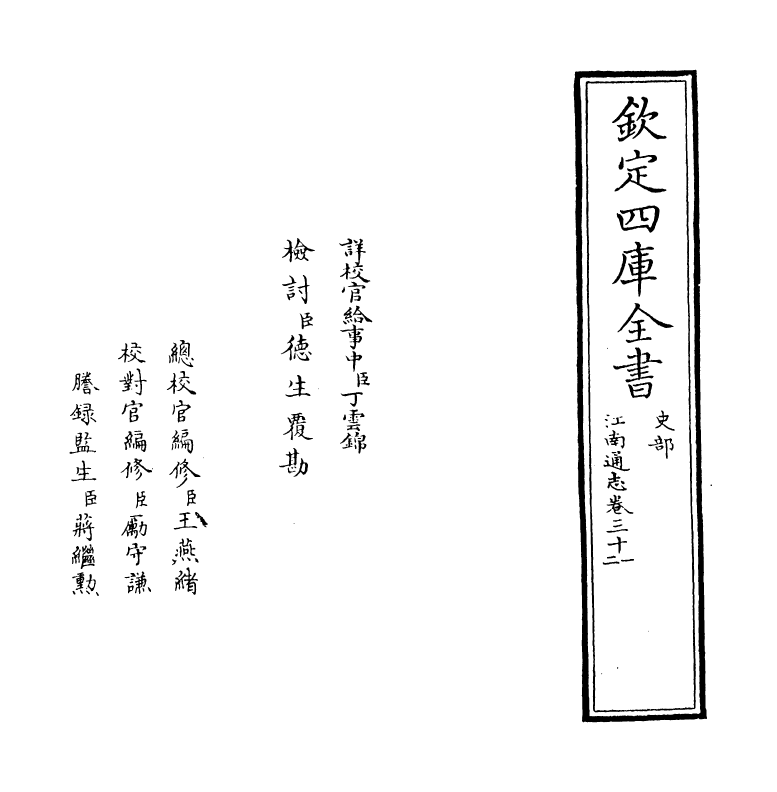 欽定四庫全書
史部
江南通志卷三十一二
詳校官給事中臣丁雲錦
檢討臣徳生覆勘
總校官編修臣王燕緒
校對官編修臣勵守謙
謄録監生臣蔣繼勲